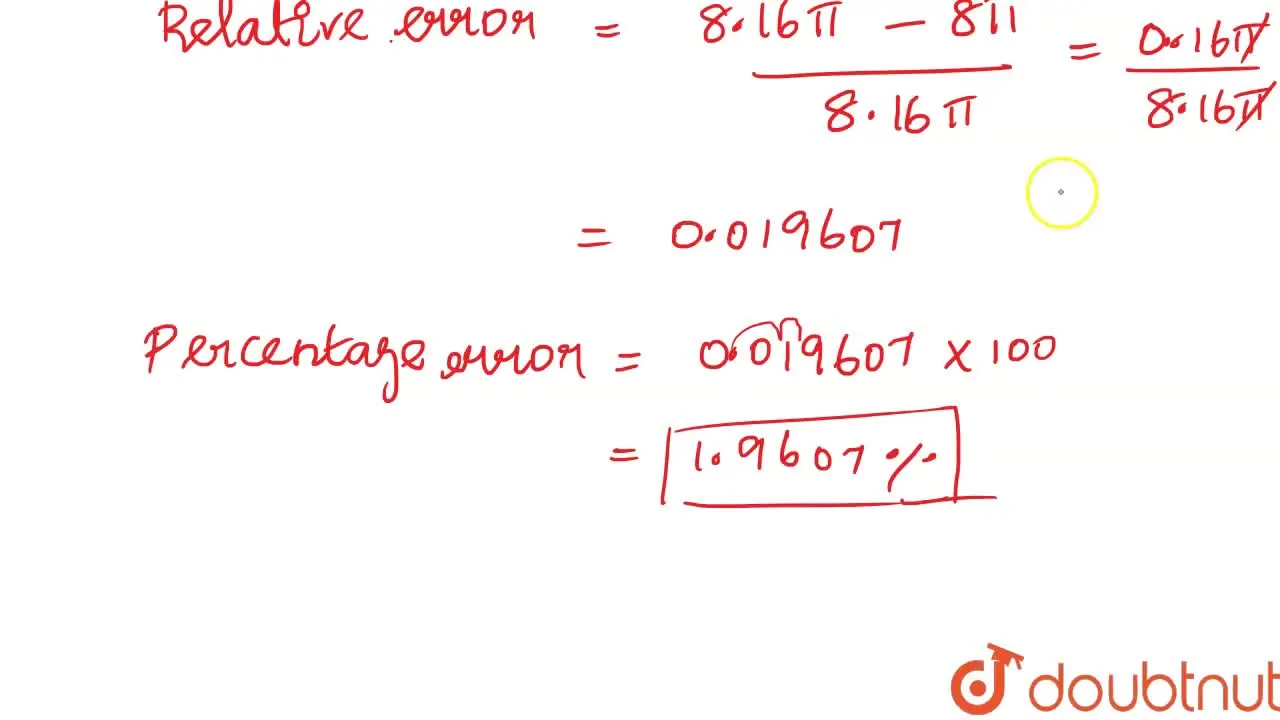 Relative error = 8.16π − 8π / 8.16π = 0.16π / 8.16π
= 0.019607
Percentage error = 0.019607 × 100
= 1.9607 %
doubtnut